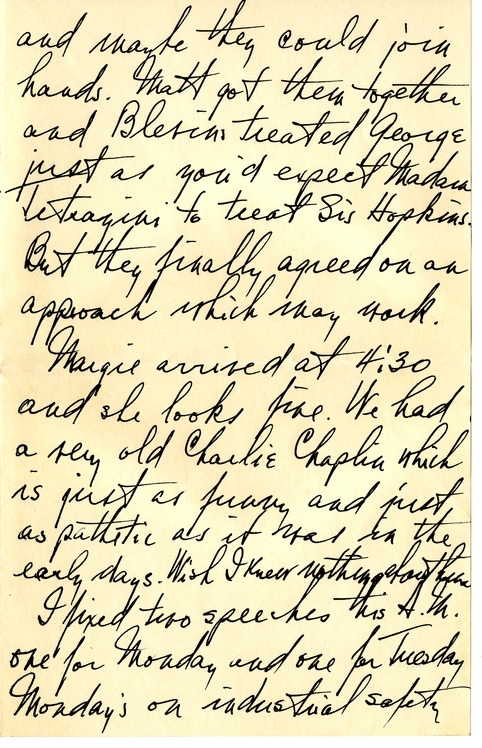 and maybe they could join
hands. Matt got them together
and Blevins treated George
just as you'd expect Madam
Tetrazini to treat Sis Hopkins.
But they finally agreed on an
approach which may work.
Margie arrived at 4:30
and she looks fine. We had
a very old Charlie Chaplin which
is just as funny and just
as pathetic as it was in the
early days. Wish I knew nothing about him
I fixed two speeches this A.M.
one for Monday and one for Tuesday
Monday's on industrial safety